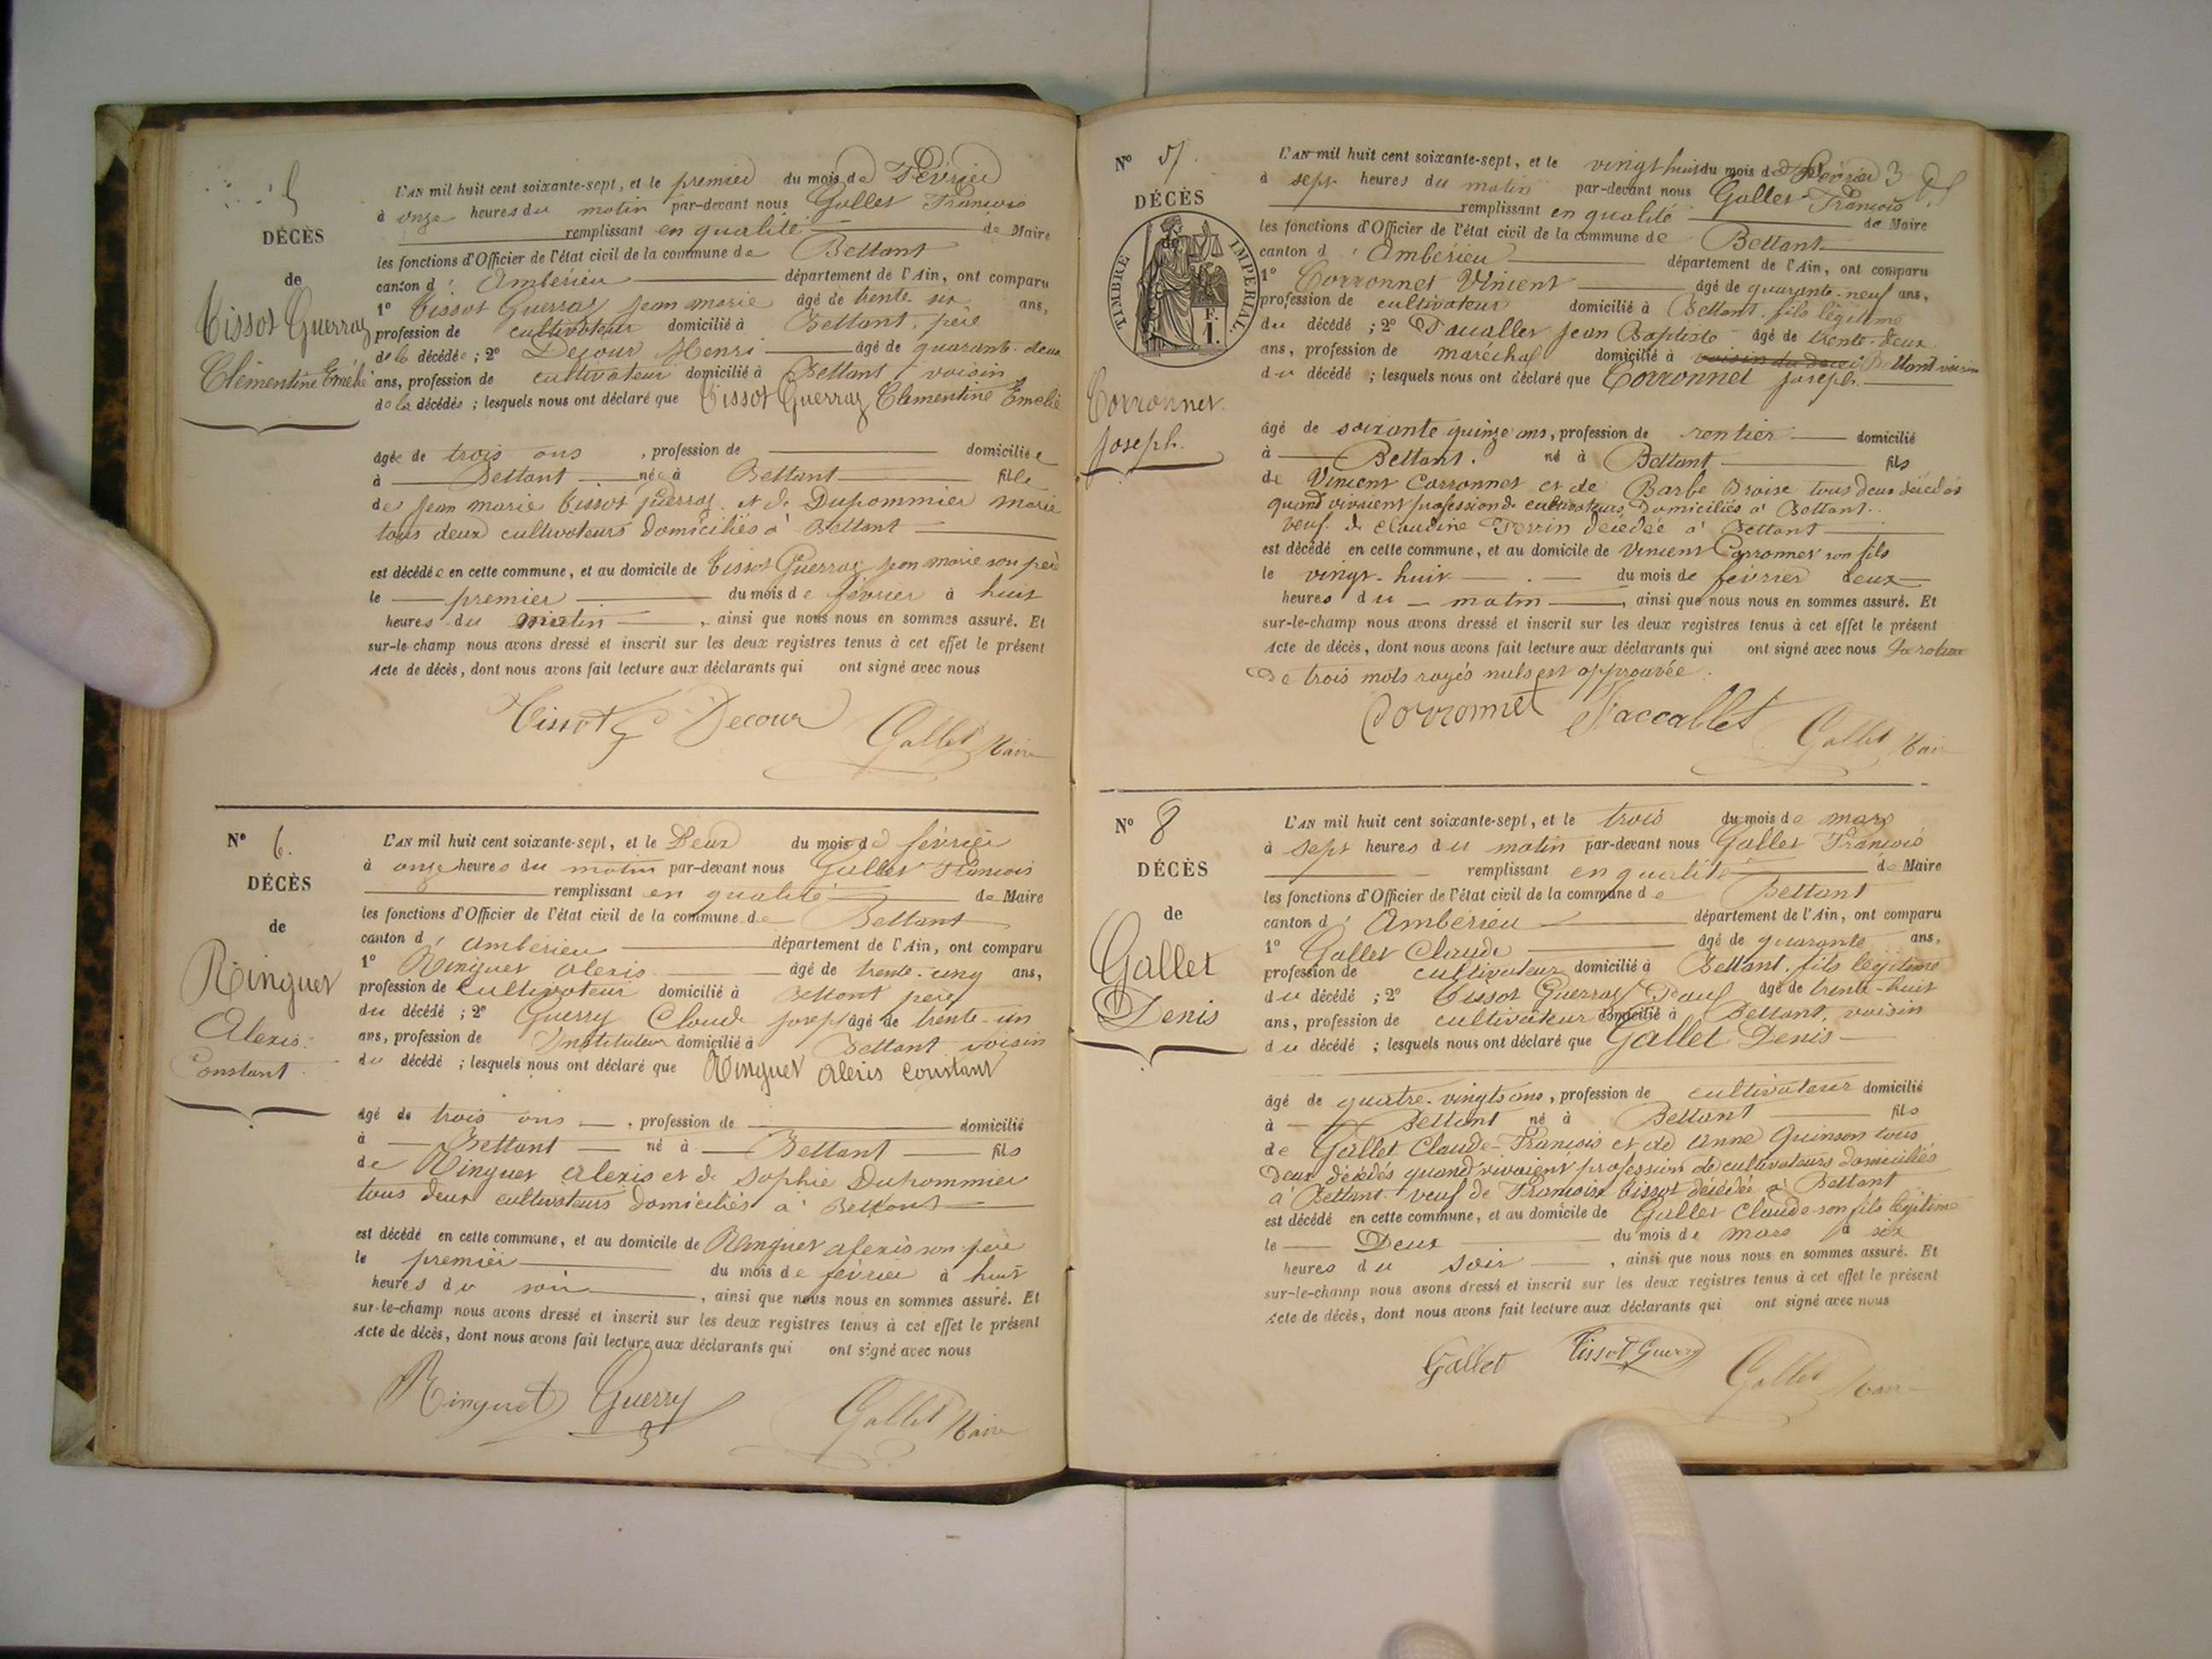 5
DÉCÈS
de
Tissot Guerraz
Clémentine Emélie
L'AN mil huit cent soixante-sept, et le premier du mois de Février
à onze heures du matin par-devant nous Gallet François
remplissant en qualité de Maire
les fonctions d'Officier de l'état civil de la commune de Bettant
canton d'Ambérieu département de l'Ain, ont comparu
1° Tissot Guerraz Jean marie âgé de trente six ans,
profession de cultivateur domicilié à Bettant, père
de la décédée ; 2° Decour Henri âgé de quarante-deux
ans, profession de cultivateur domicilié à Bettant voisin
de la décédée ; lesquels nous ont déclaré que Tissot Guerraz Clementine Emelie
agée de trois ans , profession de domiciliée
à Bettant née à Bettant fille
de Jean marie Tissot Guerraz et de Dupommier marie
tous deux cultivateurs domiciliés à Bettant
est décédée en cette commune, et au domicile de Tissot Guerraz Jean marie son père
le premier du mois de février à huit
heures du matin , ainsi que nous nous en sommes assuré. Et
sur-le-champ nous avons dressé et inscrit sur les deux registres tenus à cet effet le présent
Acte de décès, dont nous avons fait lecture aux déclarants qui ont signé avec nous
Tissot G Decour Gallet Maire
N° 6.
DÉCÈS
de
Ringuet
Alexis
Constant
L'AN mil huit cent soixante-sept, et le Deux du mois de février
à onze heures du matin par-devant nous Gallet François
remplissant en qualité de Maire
les fonctions d'Officier de l'état civil de la commune de Bettant
canton d'Ambérieu département de l'Ain, ont comparu
1° Ringuet alexis âgé de trente-cinq ans,
profession de cultivateur domicilié à Bettant père
du décédé ; 2° Guerry Claude joseph âgé de trente-un
ans, profession de Instituteur domicilié à Bettant voisin
du décédé ; lesquels nous ont déclaré que Ringuet alexis constant
âgé de trois ans , profession de domicilié
à Bettant né à Bettant fils
de Ringuet alexis et de Sophie Dupommier
tous deux cultivateurs domiciliés à Bettant
est décédé en cette commune, et au domicile de Ringuet alexis son père
le premier du mois de février à huit
heures du soir , ainsi que nous nous en sommes assuré. Et
sur-le-champ nous avons dressé et inscrit sur les deux registres tenus à cet effet le présent
Acte de décès, dont nous avons fait lecture aux déclarants qui ont signé avec nous
Ringuet Guerry Gallet Maire
N° 7.
DÉCÈS
de
TIMBRE IMPERIAL
F.
1.
Corronnet
Joseph.
L'AN mil huit cent soixante-sept, et le vingt huit du mois de Février 3
à sept heures du matin par-devant nous Gallet François
remplissant en qualité de Maire
les fonctions d'Officier de l'état civil de la commune de Bettant
canton d'Ambérieu département de l'Ain, ont comparu
1° Corronnet Vincent âgé de quarante-neuf ans,
profession de cultivateur domicilié à Bettant fils légitime
du décédé ; 2° Jean Baptiste âgé de trente-deux
ans, profession de maréchal domicilié à voisin du décédé Bettant voisin
du décédé ; lesquels nous ont déclaré que Corronnet Joseph.
âgé de soixante quinze ans, profession de rentier domicilié
à Bettant. né à Bettant fils
de Vincent Corronnet et de Barbe Broise tous deux décédés
quand vivaient profession de cultivateurs domiciliés à Bettant.
veuf de Claudine Perrin décédée à Bettant
est décédé en cette commune, et au domicile de Vincent Corronnet son fils
le vingt-huit du mois de février deux
heures du matin , ainsi que nous nous en sommes assuré. Et
sur-le-champ nous avons dressé et inscrit sur les deux registres tenus à cet effet le présent
Acte de décès, dont nous avons fait lecture aux déclarants qui ont signé avec nous La rature
de trois mots rayés nuls est approuvée.
Corronnet Gallet Maire
N° 8
DÉCÈS
de
Gallet
Denis
L'AN mil huit cent soixante-sept, et le trois du mois de mars
à sept heures du matin par-devant nous Gallet François
remplissant en qualité de Maire
les fonctions d'Officier de l'état civil de la commune de Bettant
canton d'Ambérieu département de l'Ain, ont comparu
1° Gallet Claude âgé de quarante ans,
profession de cultivateur domicilié à Bettant. fils légitime
du décédé ; 2° Tissot Guerraz Paul âgé de trente-huit
ans, profession de cultivateur domicilié à Bettant, voisin
du décédé ; lesquels nous ont déclaré que Gallet Denis
âgé de quatre-vingts ans, profession de cultivateur domicilié
à Bettant né à Bettant fils
de Gallet Claude-François et de Anne Quinson tous
Deux décédés quand vivaient profession de cultivateurs domiciliés
à Bettant. veuf de Françoise Tissot décédée à Bettant
est décédé en cette commune, et au domicile de Gallet Claude son fils légitime
le Deux du mois de mars à six
heures du soir , ainsi que nous nous en sommes assuré. Et
sur-le-champ nous avons dressé et inscrit sur les deux registres tenus à cet effet le présent
Acte de décès, dont nous avons fait lecture aux déclarants qui ont signé avec nous
Gallet Tissot Guerraz Gallet Maire